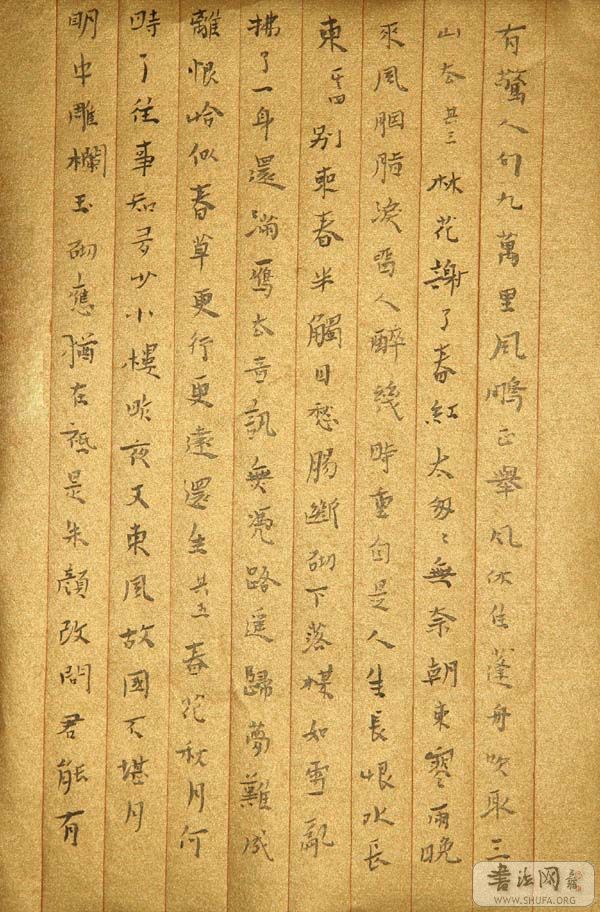 有驚人句九萬里風鵬正舉風休住蓬舟吹取三
山去其三林花謝了春紅太匆〻無奈朝來寒雨晚
來風胭脂淚留人醉幾時重自是人生長恨水長
東其四別來春半觸目愁腸斷砌下落梅如雪亂
拂了一身還滿雁去音訊無憑路遥歸夢難成
離恨恰似春草更行更遠還生其五春花秋月何
時了往事知多少小樓昨夜又東風故國不堪月
明中雕欄玉砌應猶在祗是朱顏改問君能有
書法网
WWW.SHUFA.ORG